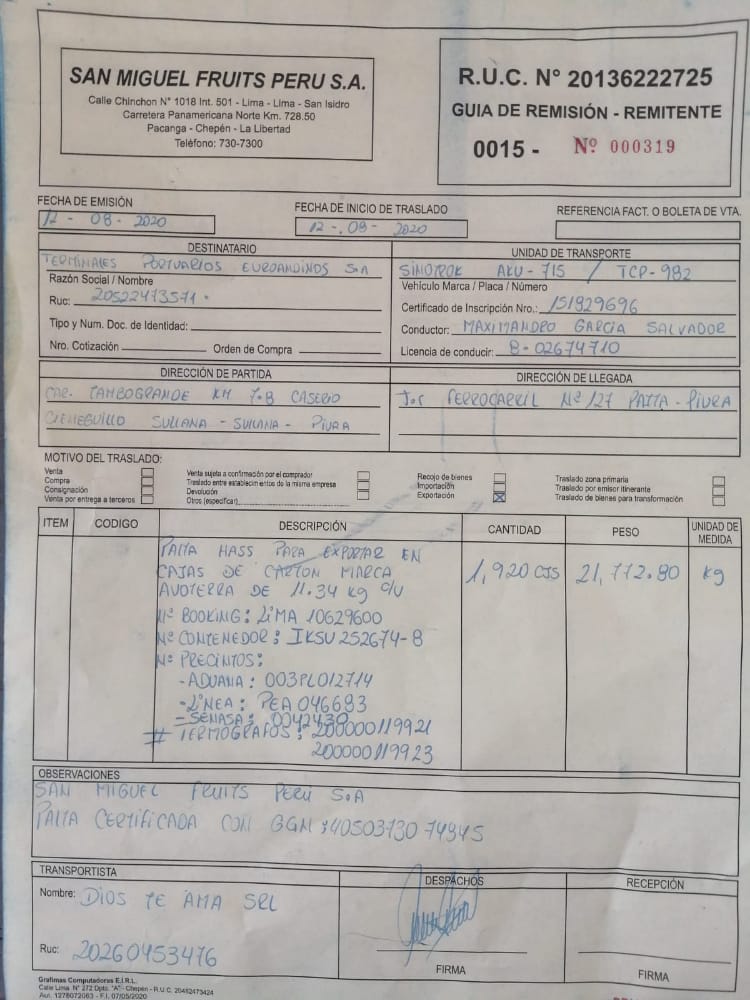 SAN MIGUEL FRUITS PERU S.A.
Calle Chinchon N° 1018 Int. 501 - Lima - Lima - San Isidro
Carretera Panamericana Norte Km. 728.50
Pacanga - Chepén - La Libertad
Teléfono: 730-7300
R.U.C. N° 20136222725
GUIA DE REMISIÓN - REMITENTE
0015 - Nº 000319
FECHA DE EMISIÓN
12 - 08 - 2020
FECHA DE INICIO DE TRASLADO
12 - 08 - 2020
REFERENCIA FACT. O BOLETA DE VTA.
DESTINATARIO
TERMINALES PORTUARIOS EUROANDINOS S.A
Razón Social / Nombre
Ruc: 20522473571.
Tipo y Num. Doc. de Identidad:
Nro. Cotización Orden de Compra
UNIDAD DE TRANSPORTE
SINOTRUK AKU - 715 / TCP - 982
Vehículo Marca / Placa / Número
Certificado de Inscripción Nro.: 151929696
Conductor: MAXIMANDRO GARCIA SALVADOR
Licencia de conducir: B - 02674710
DIRECCIÓN DE PARTIDA
CAR. TAMBOGRANDE KM 7.8 CASERIO
CIENEGUILLO SULLANA - SULLANA - PIURA
DIRECCIÓN DE LLEGADA
Jr FERROCARRIL Nº 127 PAITA - PIURA
MOTIVO DEL TRASLADO:
Venta
Compra
Consignación
Venta por entrega a terceros
Venta sujeta a confirmación por el comprador
Traslado entre establecimientos de la misma empresa
Devolución
Otros (especificar)
Recojo de bienes
Importación
Exportación
Traslado zona primaria
Traslado por emisor itinerante
Traslado de bienes para transformación
ITEM CODIGO DESCRIPCIÓN CANTIDAD PESO UNIDAD DE MEDIDA
PALTA HASS PARA EXPORTAR EN
CAJAS DE CARTON MARCA 1,920 CJS 21,772.80 Kg
AVOTERRA DE 11.34 Kg c/u
Nº BOOKING: LIMA 10629600
Nº CONTENEDOR: IKSU 252674-8
Nº PRECINTOS:
- ADUANA: 003PL012714
- LINEA: PEA 046683
- SENASA: 0042439
# TERMOGRAFOS: 200000119921
200000119923
OBSERVACIONES
SAN MIGUEL FRUITS PERU S.A
PALTA CERTIFICADA CON GGN: 4050373074945
TRANSPORTISTA
Nombre: DIOS TE AMA SRL
Ruc: 20260453476
DESPACHOS
FIRMA
RECEPCIÓN
FIRMA
Grafimas Computadoras E.I.R.L.
Calle Lima N° 272 Dpto. "A" - Chepén - R.U.C. 20482473424
Aut. 1278072063 - F.I. 07/05/2020